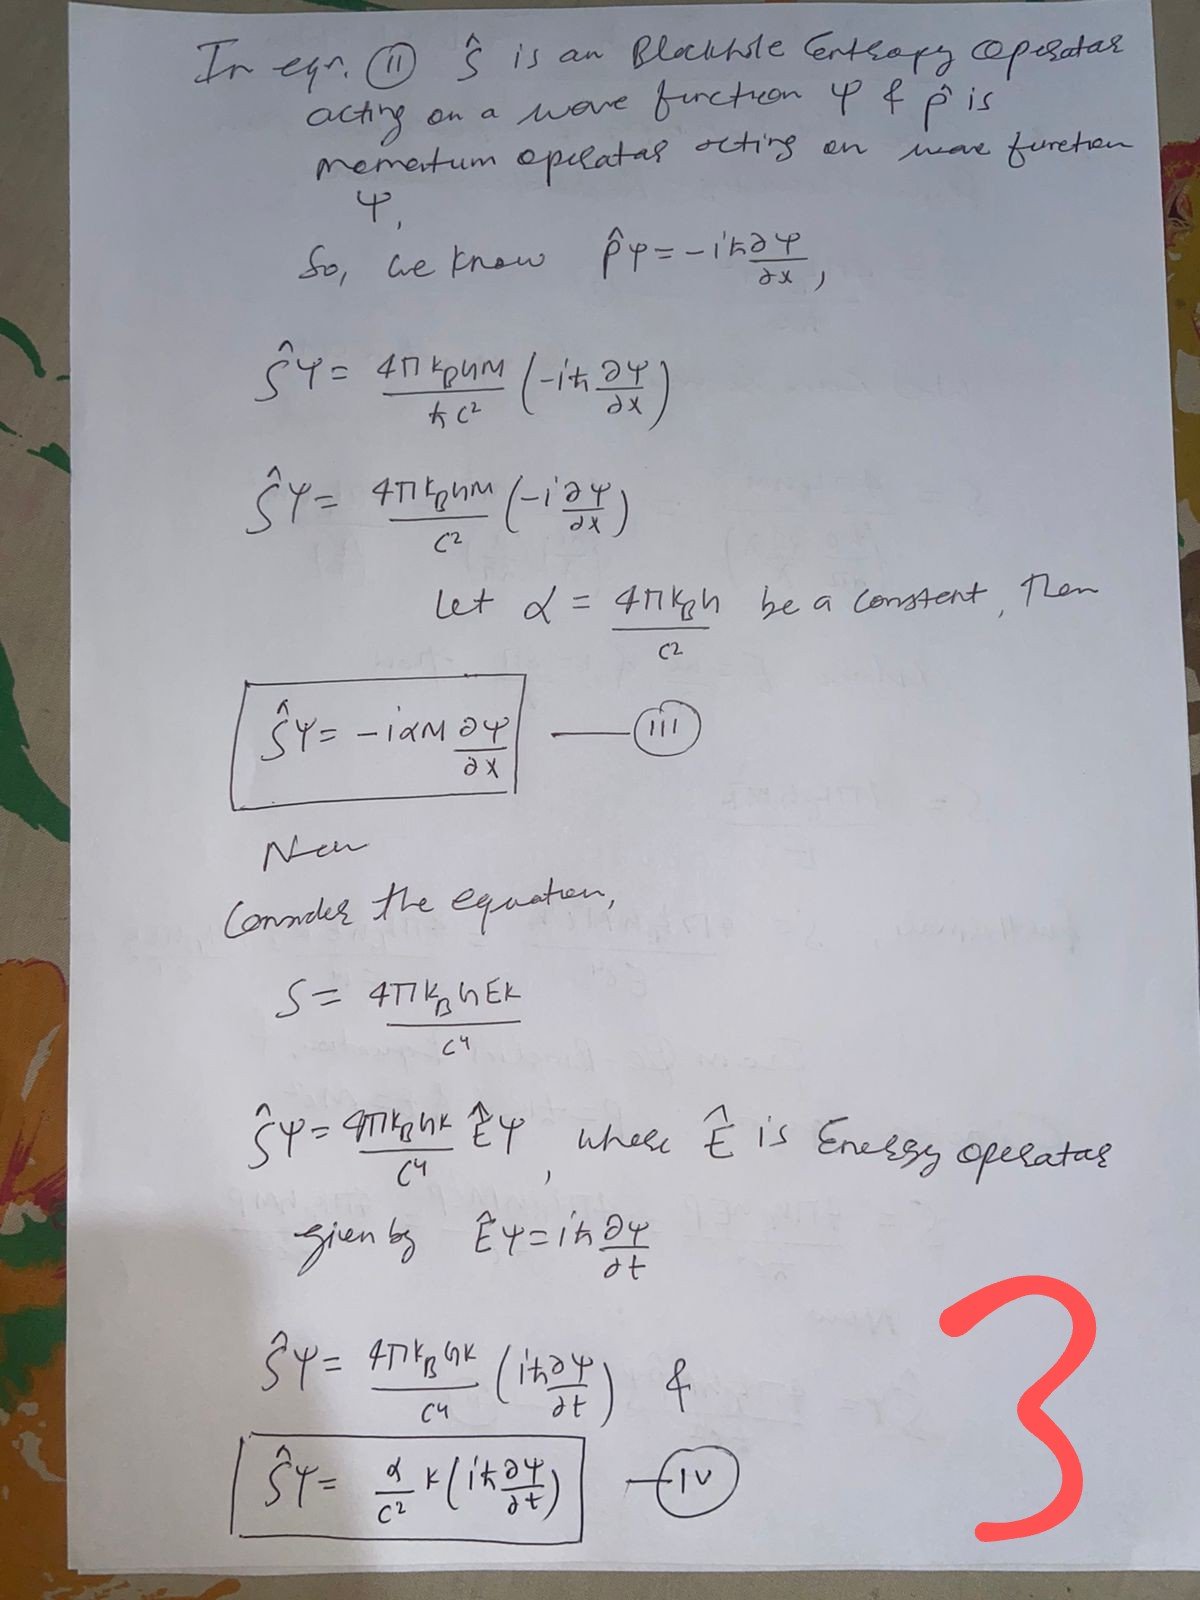 In eqn. (II) Ŝ is an Blackhole Entropy operator
acting on a wave function Ψ & p̂ is
momentum operator acting on wave function
Ψ.
So, we know P̂Ψ = -iħ ∂Ψ/∂x,
ŜΨ = 4πk_BGM/ħc² (-iħ ∂Ψ/∂x)
ŜΨ = 4πk_BGM/c² (-i ∂Ψ/∂x)
Let α = 4πk_BG/c² be a constant, then
ŜΨ = -iαM ∂Ψ/∂x — (III)
Now
Consider the equation,
S = 4πk_BGEK/c⁴
ŜΨ = 4πk_BGK/c⁴ ÊΨ, where Ê is Energy operator
given by ÊΨ = iħ ∂Ψ/∂t
ŜΨ = 4πk_BGK/c⁴ (iħ ∂Ψ/∂t) &
ŜΨ = α/c² K (iħ ∂Ψ/∂t) — (IV)
3